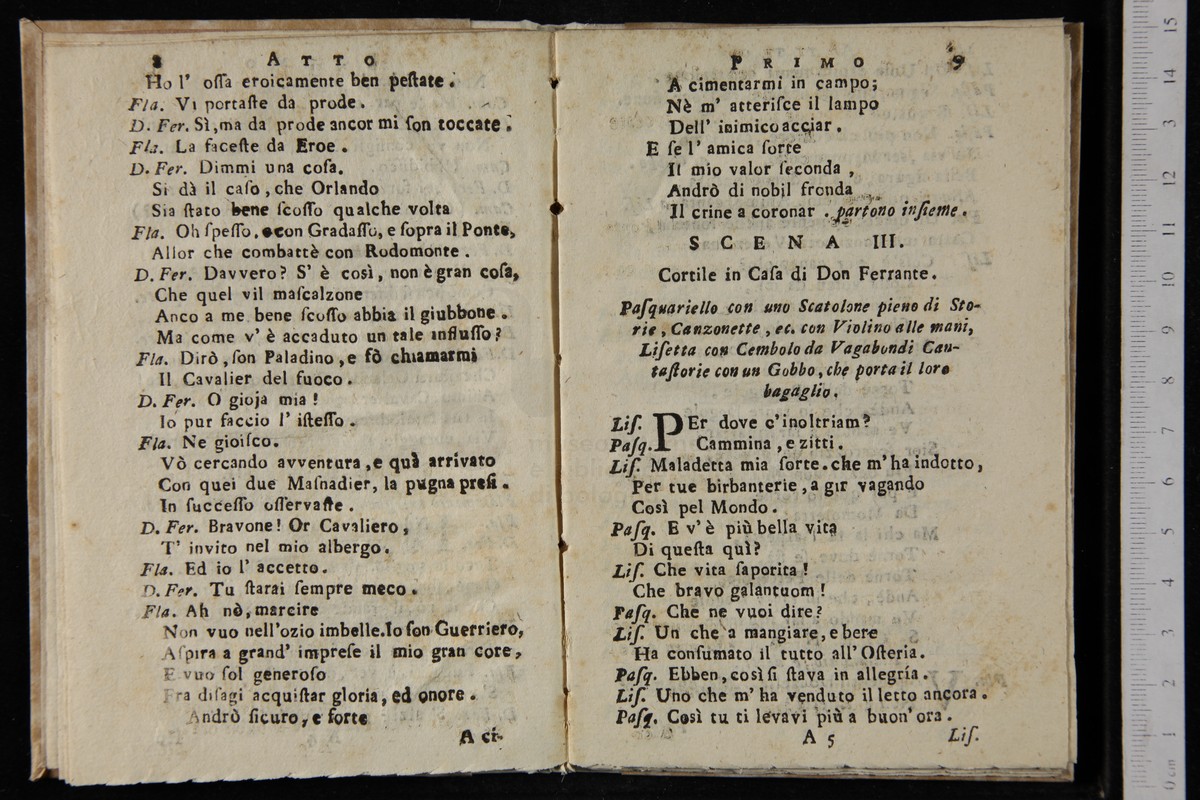 8 ATTO
Ho l' oſſa eroicamente ben peſtate.
Fla. Vi portaſte da prode.
D. Fer. Sì, ma da prode ancor mi ſon toccate.
Fla. La faceſte da Eroe.
D. Fer. Dimmi una coſa.
Si dà il caſo, che Orlando
Sia ſtato bene ſcoſſo qualche volta
Fla. Oh ſpeſſo, con Gradaſſo, e ſopra il Ponte,
Allor che combattè con Rodomonte.
D. Fer. Davvero? S' è così, non è gran coſa,
Che quel vil maſcalzone
Anco a me bene ſcoſſo abbia il giubbone.
Ma come v' è accaduto un tale influſſo?
Fla. Dirò, ſon Paladino, e fò chiamarmi
Il Cavalier del fuoco.
D. Fer. O gioja mia!
Io pur faccio l' iſteſſo.
Fla. Ne gioiſco.
Vò cercando avventura, e quì arrivato
Con quei due Maſnadier, la pugna preſi.
In ſucceſſo oſſervaſte.
D. Fer. Bravone! Or Cavaliero,
T' invito nel mio albergo.
Fla. Ed io l' accetto.
D. Fer. Tu ſtarai ſempre meco.
Fla. Ah nò, marcire
Non vuo nell'ozio imbelle. Io ſon Guerriero,
Aſpira a grand' impreſe il mio gran core,
E vuo ſol generoſo
Fra diſagi acquiſtar gloria, ed onore.
Andrò ſicuro, e forte
A ci-
PRIMO 9
A cimentarmi in campo;
Nè m' atteriſce il lampo
Dell' inimico acciar.
E ſe l' amica ſorte
Il mio valor ſeconda,
Andrò di nobil fronda
Il crine a coronar. partono inſieme.
SCENA III.
Cortile in Caſa di Don Ferrante.
Paſquariello con uno Scatolone pieno di Sto-
rie, Canzonette, ec. con Violino alle mani,
Liſetta con Cembolo da Vagabondi Can-
taſtorie con un Gobbo, che porta il loro
bagaglio.
Liſ. PEr dove c'inoltriam?
Paſq. Cammina, e zitti.
Liſ. Maladetta mia ſorte. che m' ha indotto,
Per tue birbanterie, a gir vagando
Così pel Mondo.
Paſq. E v' è più bella vita
Di queſta quì?
Liſ. Che vita ſaporita!
Che bravo galantuom!
Paſq. Che ne vuoi dire?
Liſ. Un che a mangiare, e bere
Ha conſumato il tutto all' Oſteria.
Paſq. Ebben, così ſi ſtava in allegría.
Liſ. Uno che m' ha venduto il letto ancora.
Paſq. Così tu ti levavi più a buon' ora.
A 5 Liſ.
15
14
13
12
11
10
9
8
7
6
5
4
3
2
1
0 cm